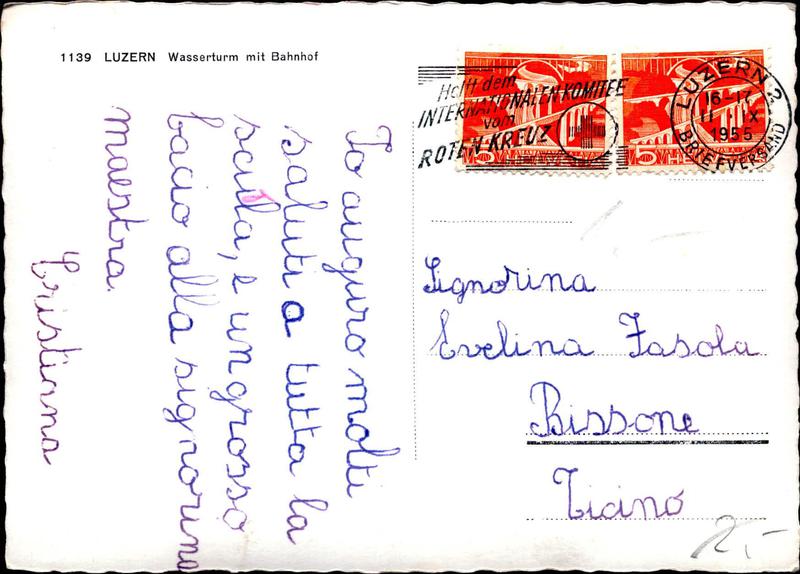 1139 LUZERN Wasserturm mit Bahnhof
Helft dem
INTERNATIONALEN KOMITEE
vom
ROTEN KREUZ
LUZERN 2
16-17
11 IX
1955
BRIEFVERSAND
5
5
Io auguro molti
saluti a tutta la
scuola, e un grosso
bacio alla signorina
maestra.
Cristiana
Signorina
Evelina Fasola
Bissone
Ticino
2.-